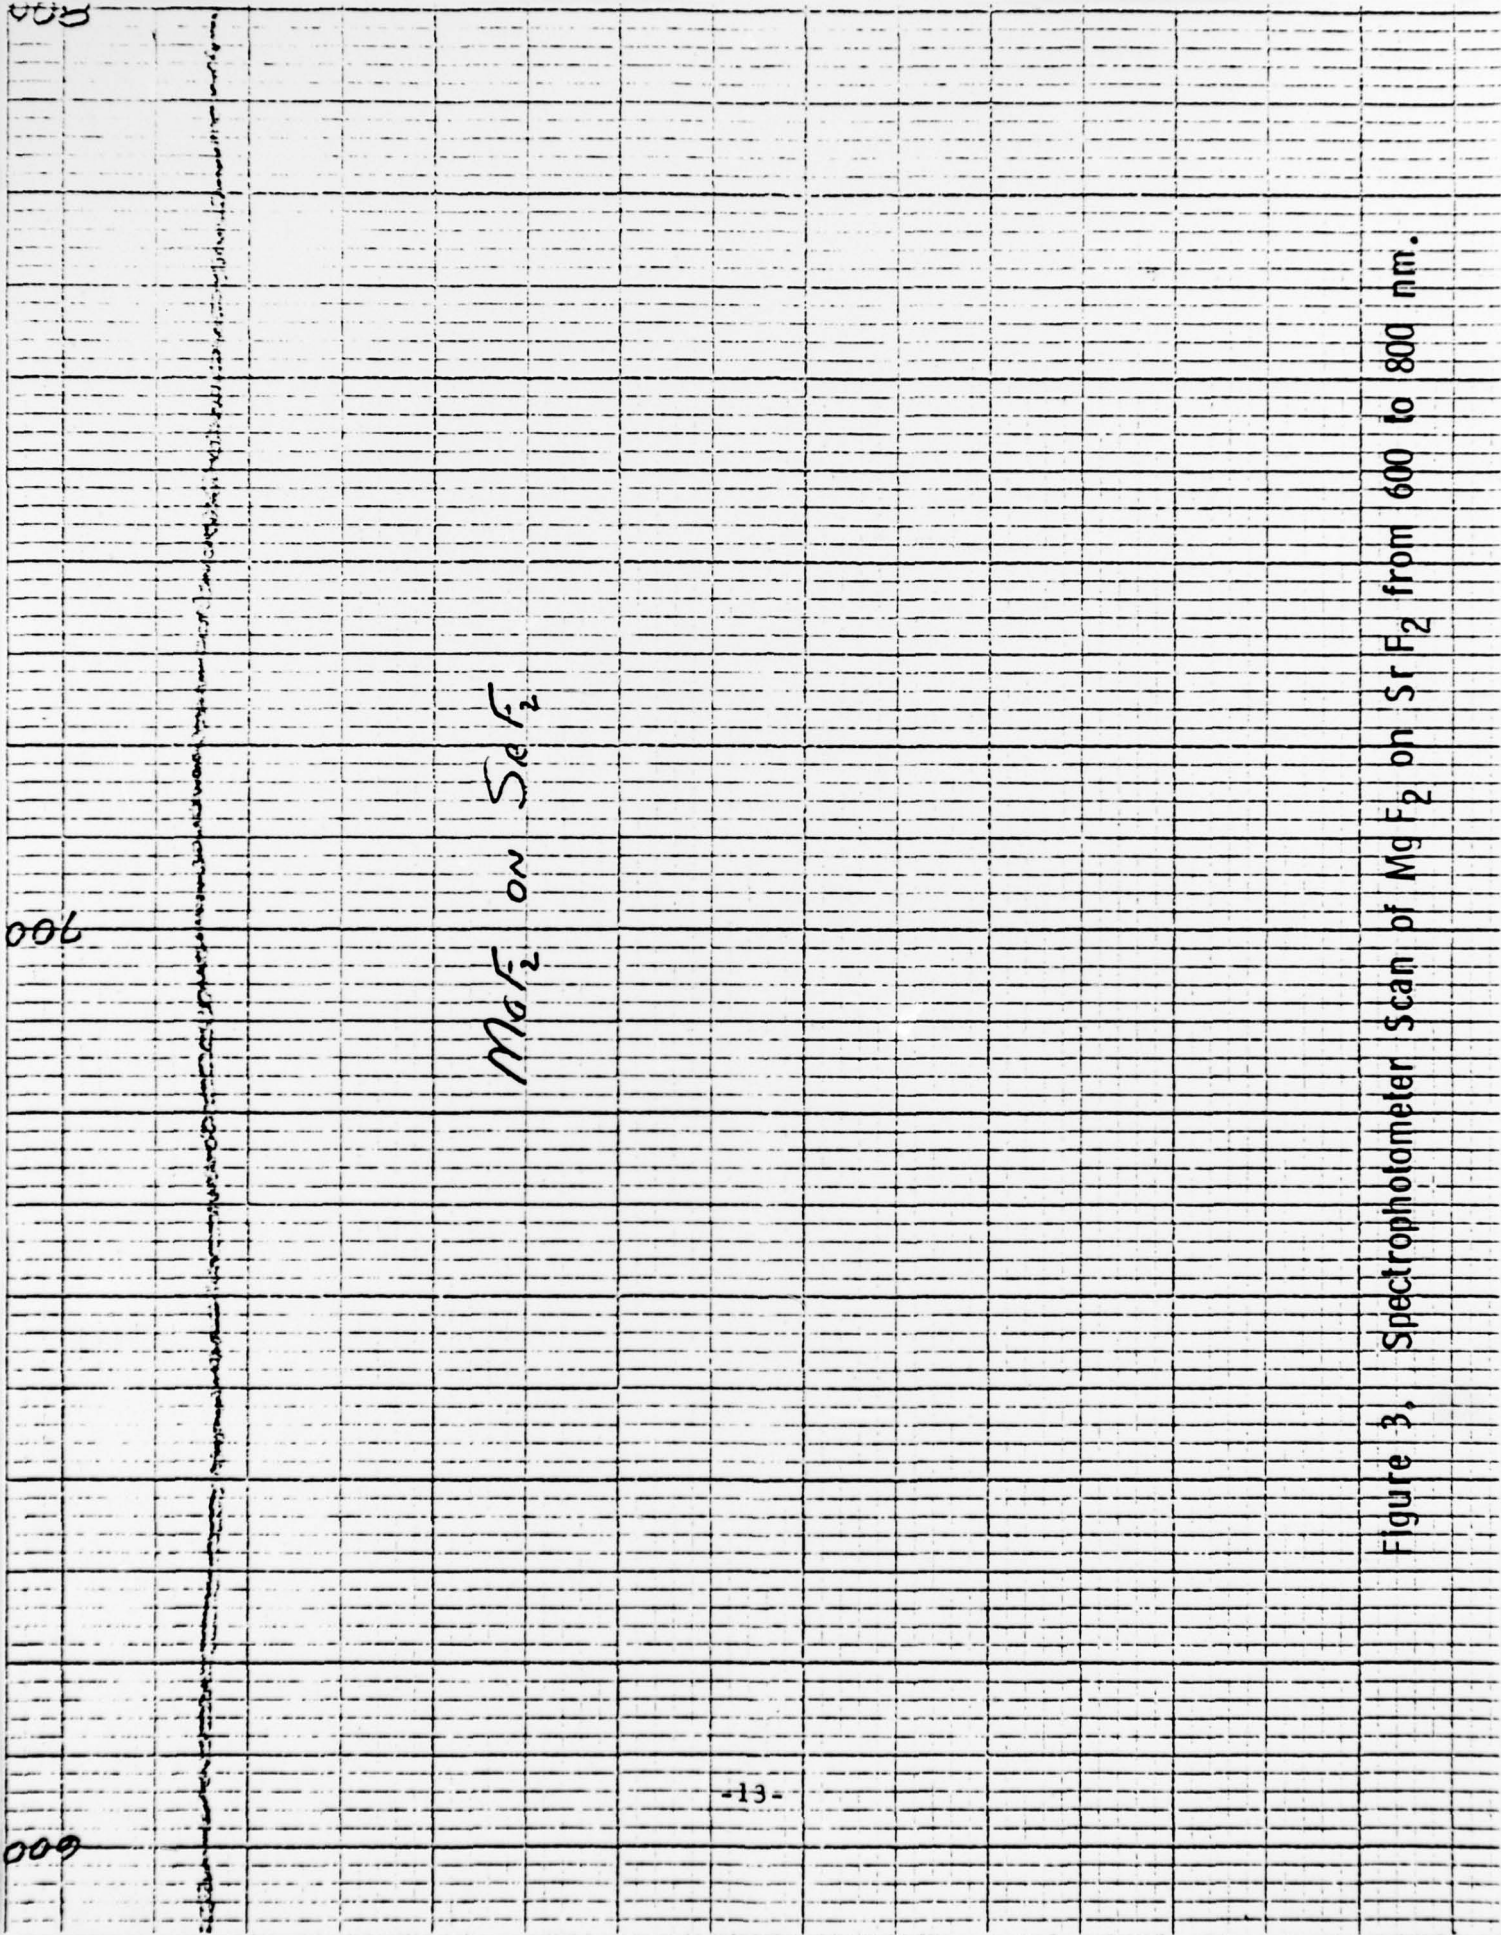 800
700
600
MGF2 ON SRF2
Figure 3. Spectrophotometer Scan of Mg F2 on Sr F2 from 600 to 800 nm.
-13-